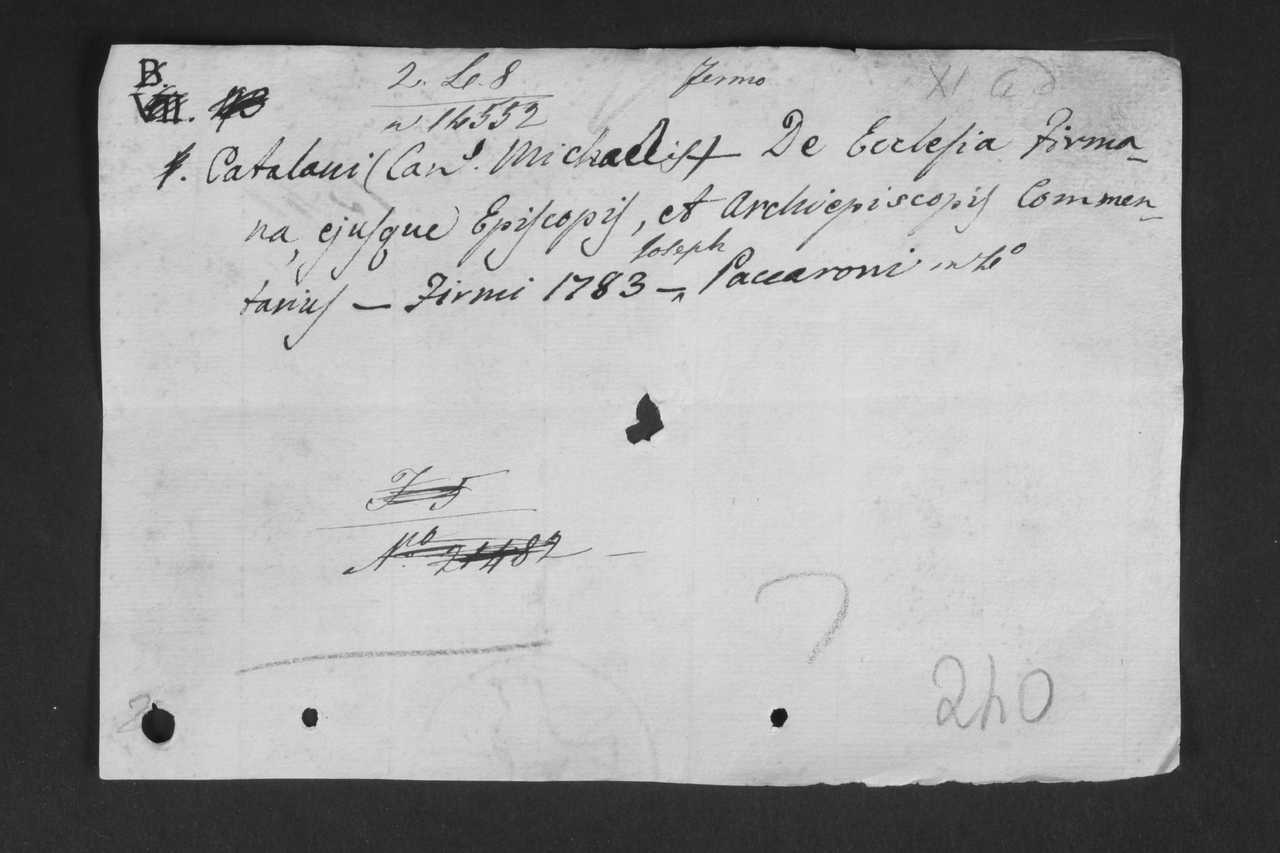 B
VIII.
2. Le. 8
Fermo
XI
n. 14552
Catalani (Can. Michaelis) De Ecclesia Firma-
na, ejusque Episcopis, et Archiepiscopis Commen-
tarius — Firmi 1783 — Joseph Paccaroni in 4º
F 5
Nro. 21482
7
2
240